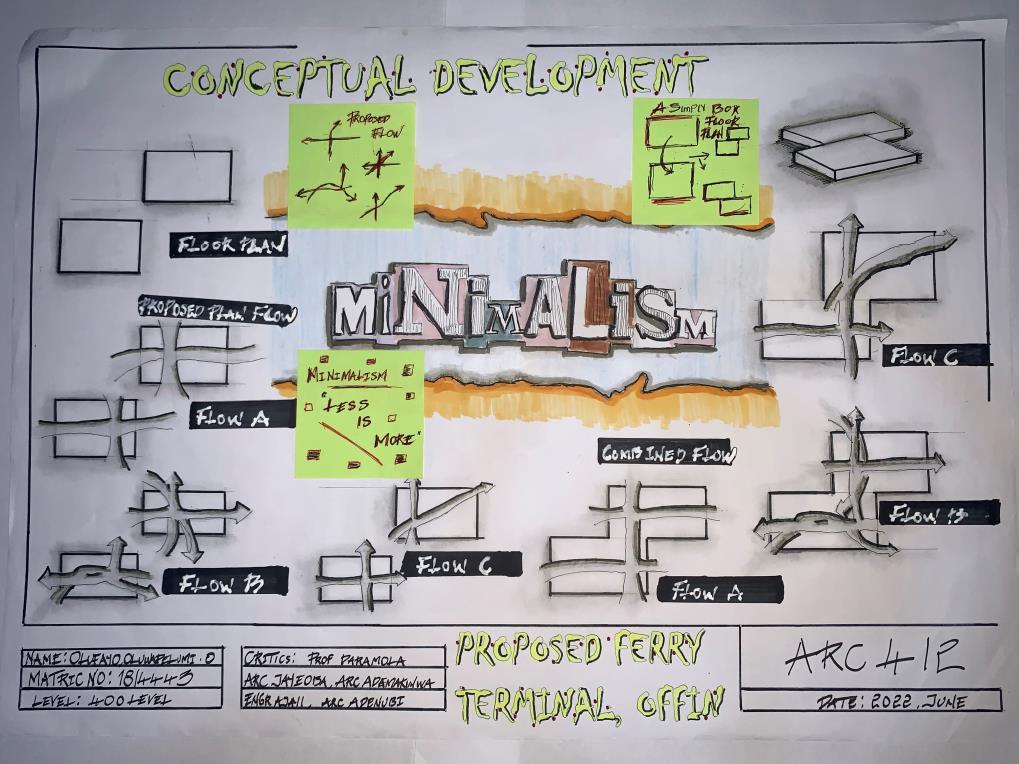 CONCEPTUAL DEVELOPMENT
PROPOSED
FLOW
A SIMPLY BOX
FLOOR
PLAN
FLOOR PLAN
PROPOSED PLAN FLOW
MINIMALISM
FLOW C
MINIMALISM
"LESS
IS
MORE"
FLOW A
COMBINED FLOW
FLOW B
FLOW B
FLOW C
FLOW A
NAME: OLUFAYO.OLUWAPELUMI.O
MATRIC NO: 18/4443
LEVEL: 400 LEVEL
CRITICS: PROF DARAMOLA
ARC JAIEOBA, ARC ADEMAKINWA
ARC ADENUBI
PROPOSED FERRY
TERMINAL, OFFIN
ARC 412
DATE: 2022, JUNE